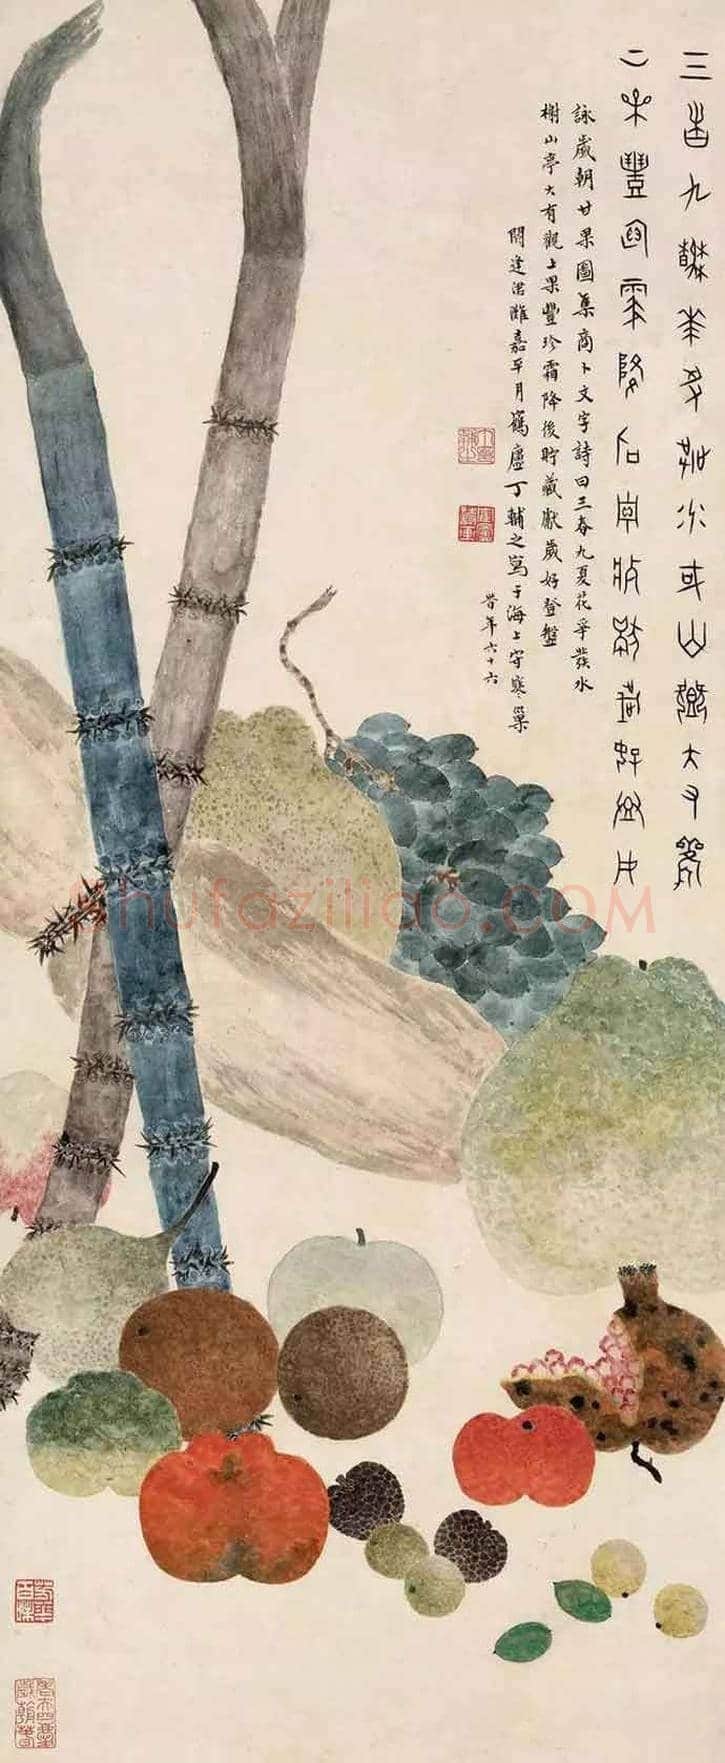 三春九夏花爭發水榭山亭大有觀
上果豐珍霜降後貯藏獻歲好登盤
詠歲朝廿果圖集商卜文字詩曰三春九夏花爭發水
榭山亭大有觀上果豐珍霜降後貯藏獻歲好登盤
閼逢涒灘嘉平月鶴廬丁輔之寫于海上守寒巢
旹年六十六
Shufaziliao.COM